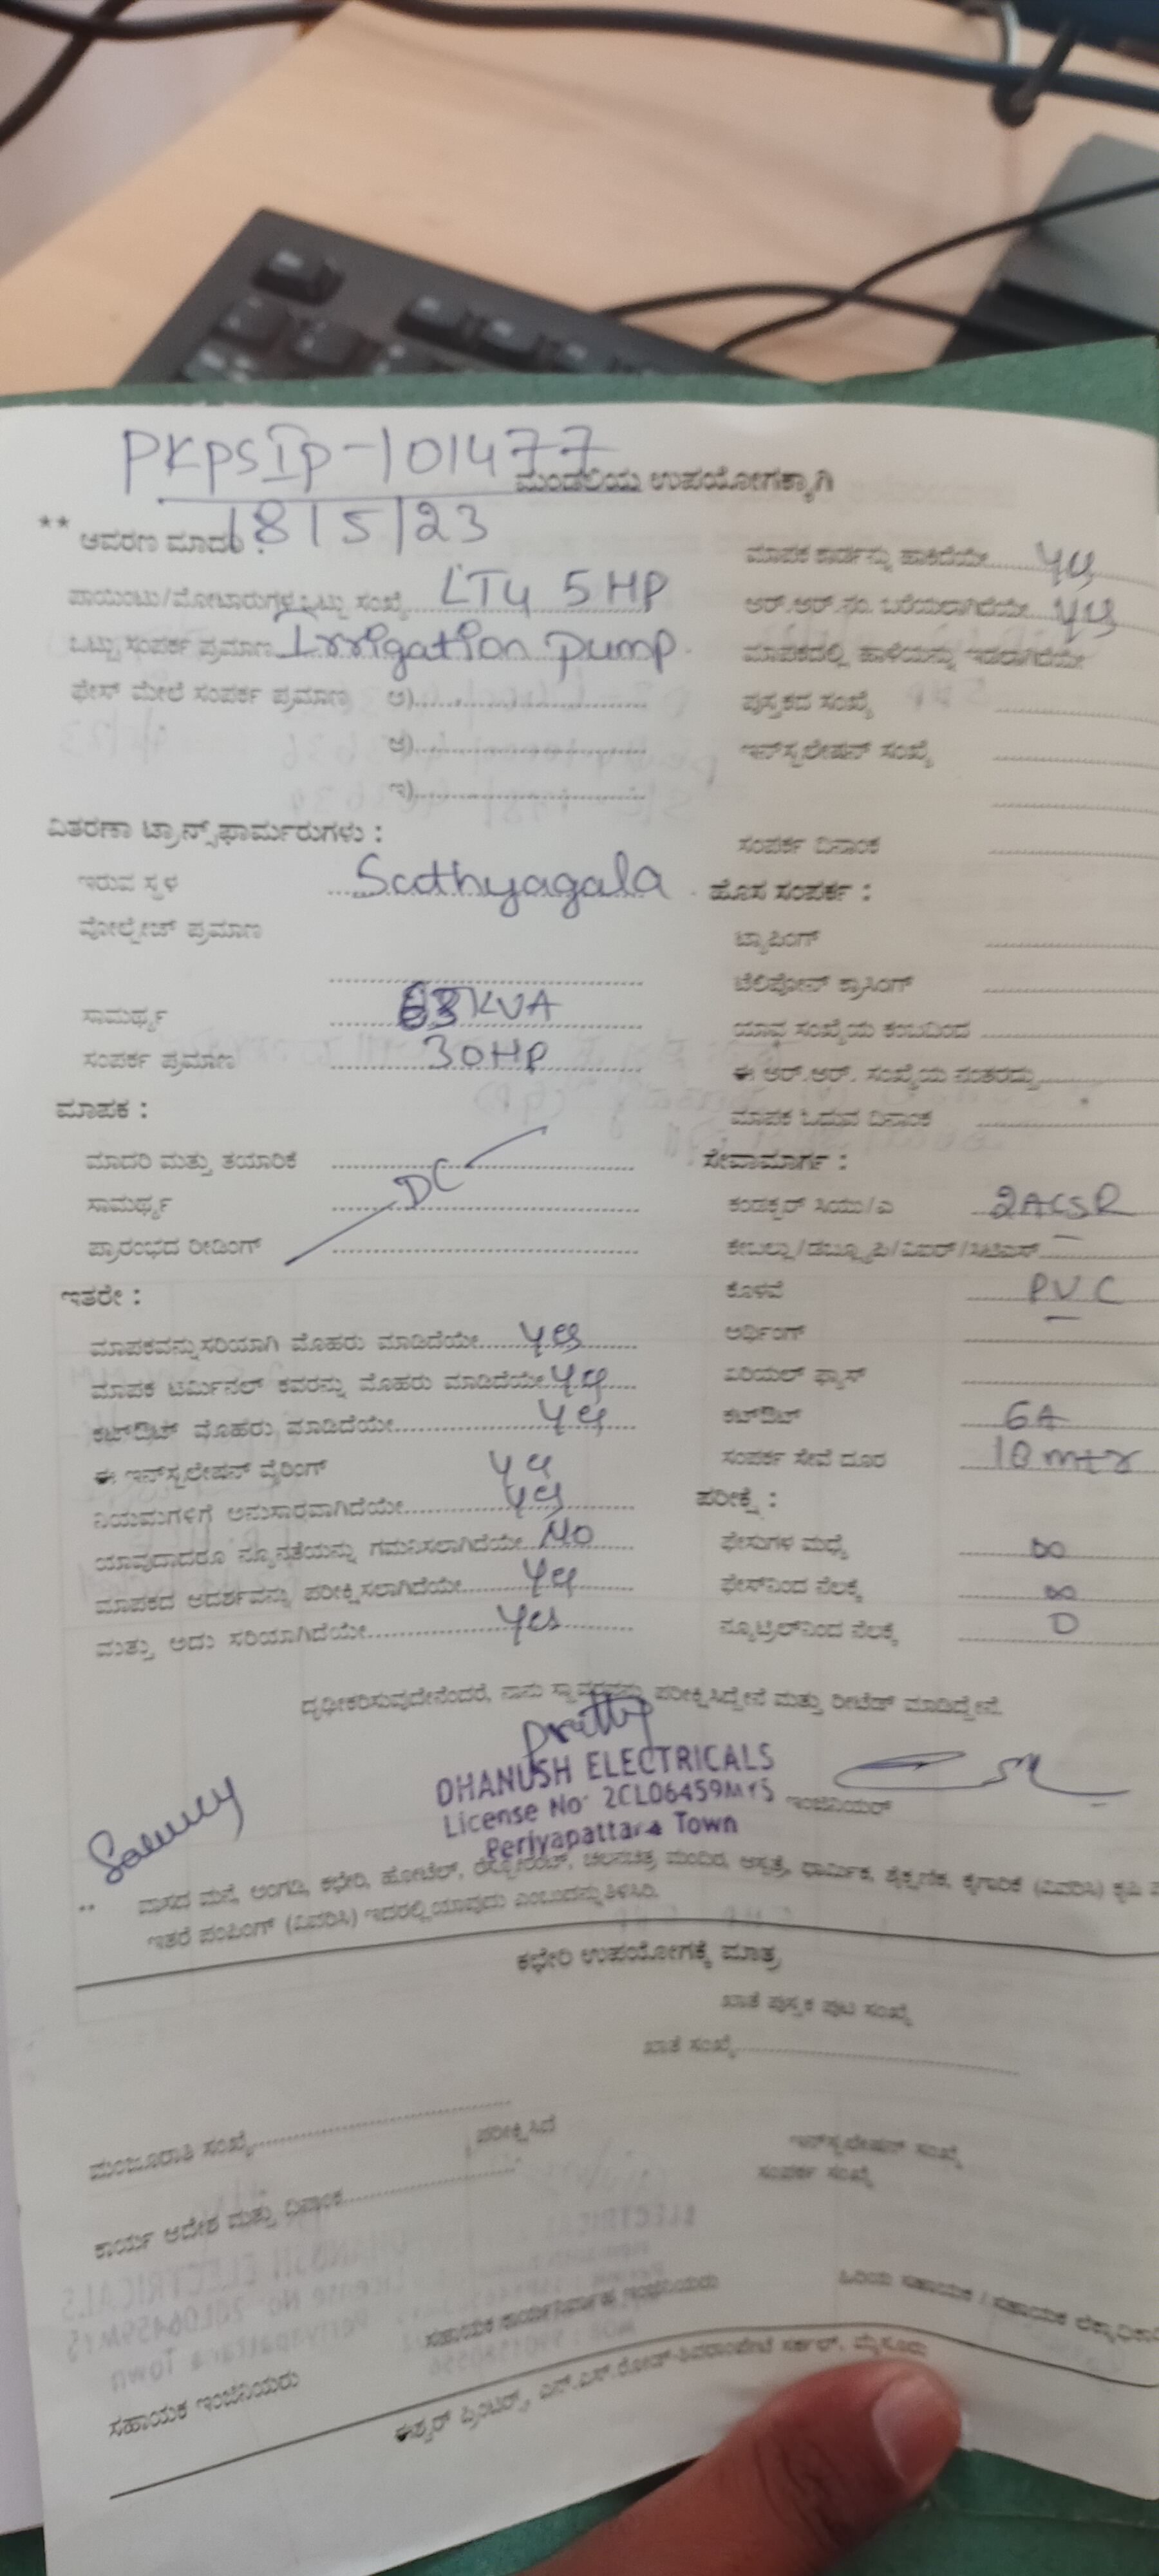 PKPSIp-101477
ಮಂಡಲಿಯ ಉಪಯೋಗಕ್ಕಾಗಿ
18/5/23
** ಆವರಣ ಮಾದರಿ :
ಪಾಯಿಂಟು/ಮೋಟಾರುಗಳ ಒಟ್ಟು ಸಂಖ್ಯೆ LT4 5 HP
ಒಟ್ಟು ಸಂಪರ್ಕ ಪ್ರಮಾಣ Irrigation pump
ಫೇಸ್ ಮೇಲೆ ಸಂಪರ್ಕ ಪ್ರಮಾಣ ಅ)
ಆ)
ಇ)
ವಿತರಣಾ ಟ್ರಾನ್ಸ್‌ಫಾರ್ಮರುಗಳು :
ಇರುವ ಸ್ಥಳ Sathyagala
ವೋಲ್ಟೇಜ್ ಪ್ರಮಾಣ
ಸಾಮರ್ಥ್ಯ 63 KVA
ಸಂಪರ್ಕ ಪ್ರಮಾಣ 30HP
ಮಾಪಕ :
ಮಾದರಿ ಮತ್ತು ತಯಾರಿಕೆ
ಸಾಮರ್ಥ್ಯ DC
ಪ್ರಾರಂಭದ ರೀಡಿಂಗ್
ಇತರೇ :
ಮಾಪಕವನ್ನು ಸರಿಯಾಗಿ ಮೊಹರು ಮಾಡಿದೆಯೇ yes
ಮಾಪಕ ಟರ್ಮಿನಲ್ ಕವರನ್ನು ಮೊಹರು ಮಾಡಿದೆಯೇ yes
ಕಟ್‌ಔಟ್ ಮೊಹರು ಮಾಡಿದೆಯೇ yes
ಈ ಇನ್‌ಸ್ಟಲೇಷನ್ ವೈರಿಂಗ್ yes
ನಿಯಮಗಳಿಗೆ ಅನುಸಾರವಾಗಿದೆಯೇ yes
ಯಾವುದಾದರೂ ನ್ಯೂನತೆಯನ್ನು ಗಮನಿಸಲಾಗಿದೆಯೇ No
ಮಾಪಕದ ಆದರ್ಶವನ್ನು ಪರೀಕ್ಷಿಸಲಾಗಿದೆಯೇ yes
ಮತ್ತು ಅದು ಸರಿಯಾಗಿದೆಯೇ yes
ಮಾಪಕ ಕಾರ್ಡನ್ನು ಹಾಕಿದೆಯೇ yes
ಆರ್.ಆರ್.ನಂ. ಬರೆಯಲಾಗಿದೆಯೇ yes
ಮಾಪಕದಲ್ಲಿ ಹಾಳೆಯನ್ನು ಇಡಲಾಗಿದೆಯೇ
ಪುಸ್ತಕದ ಸಂಖ್ಯೆ
ಇನ್‌ಸ್ಟಲೇಷನ್ ಸಂಖ್ಯೆ
ಸಂಪರ್ಕ ದಿನಾಂಕ
ಹೊಸ ಸಂಪರ್ಕ :
ಟ್ಯಾಪಿಂಗ್
ಟೆಲಿಫೋನ್ ಕ್ರಾಸಿಂಗ್
ಯಾವ ಸಂಖ್ಯೆಯ ಕಂಬದಿಂದ
ಈ ಆರ್.ಆರ್. ಸಂಖ್ಯೆಯ ನಂತರದ್ದು
ಮಾಪಕ ಓದುವ ದಿನಾಂಕ
ಸೇವಾಮಾರ್ಗ :
ಕಂಡಕ್ಟರ್ ಸಿಯು/ಎ 2ACSR
ಕೇಬಲ್ಲು/ಡಬ್ಲ್ಯೂಪಿ/ವಿಐಆರ್/ಸಿಟಿಎಸ್
ಕೊಳವೆ PVC
ಅರ್ಥಿಂಗ್
ಏರಿಯಲ್ ಫ್ಯೂಸ್
ಕಟ್‌ಔಟ್ 6A
ಸಂಪರ್ಕ ಸೇವೆ ದೂರ 10 mtr
ಪರೀಕ್ಷೆ :
ಫೇಸುಗಳ ಮಧ್ಯೆ ∞
ಫೇಸ್‌ನಿಂದ ನೆಲಕ್ಕೆ ∞
ನ್ಯೂಟ್ರಲ್‌ನಿಂದ ನೆಲಕ್ಕೆ 0
ದೃಢೀಕರಿಸುವುದೇನೆಂದರೆ, ನಾನು ಸ್ಥಾವರವನ್ನು ಪರೀಕ್ಷಿಸಿದ್ದೇನೆ ಮತ್ತು ರೀಟೆಡ್ ಮಾಡಿದ್ದೇನೆ.
DHANUSH ELECTRICALS
License No: 2CL06459MYS
Periyapattara Town
ಇಂಜಿನಿಯರ್
** ವಾಸದ ಮನೆ, ಅಂಗಡಿ, ಕಛೇರಿ, ಹೋಟೆಲ್, ರೆಸ್ಟೋರೆಂಟ್, ಚಲನಚಿತ್ರ ಮಂದಿರ, ಆಸ್ಪತ್ರೆ, ಧಾರ್ಮಿಕ, ಶೈಕ್ಷಣಿಕ, ಕೈಗಾರಿಕೆ (ವಿವರಿಸಿ) ಕೃಷಿ
ಇತರೆ ಪಂಪಿಂಗ್ (ವಿವರಿಸಿ) ಇದರಲ್ಲಿ ಯಾವುದು ಎಂಬುದನ್ನು ತಿಳಿಸಿರಿ.
ಕಛೇರಿ ಉಪಯೋಗಕ್ಕೆ ಮಾತ್ರ
ಖಾತೆ ಪುಸ್ತಕ ಪುಟ ಸಂಖ್ಯೆ
ಖಾತೆ ಸಂಖ್ಯೆ
ಮಂಜೂರಾತಿ ಸಂಖ್ಯೆ
ಪರೀಕ್ಷಿಸಿದೆ
ಇನ್‌ಸ್ಟಲೇಷನ್ ಸಂಖ್ಯೆ
ಸಂಪರ್ಕ ಸಂಖ್ಯೆ
ಕಾರ್ಯ ಆದೇಶ ಮತ್ತು ದಿನಾಂಕ
ಸಹಾಯಕ ಇಂಜಿನಿಯರು
ಸಹಾಯಕ ಕಾರ್ಯನಿರ್ವಾಹಕ ಇಂಜಿನಿಯರು
ಹಿರಿಯ ಸಹಾಯಕ / ಸಹಾಯಕ ಲೆಕ್ಕಾಧಿಕಾರಿ
ಈಶ್ವರ್ ಪ್ರಿಂಟರ್ಸ್, ಎನ್.ಎಸ್.ರೋಡ್-ಶಿವರಾಂಪೇಟೆ ಸರ್ಕಲ್, ಮೈಸೂರು